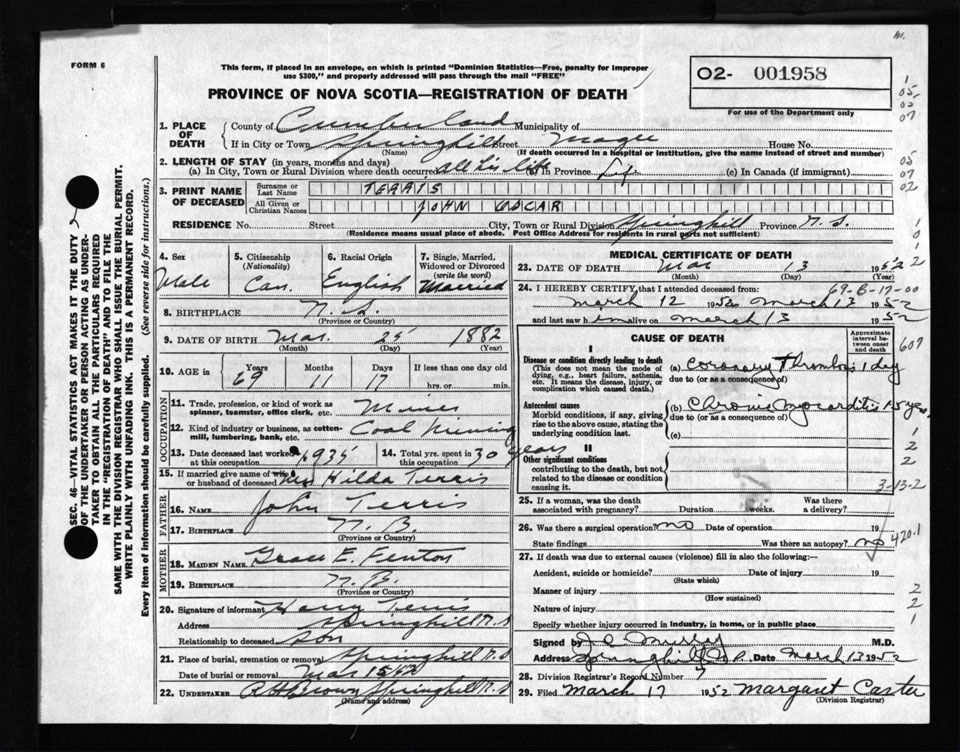 FORM 6
This form, if placed in an envelope, on which is printed "Dominion Statistics—Free, penalty for improper
use $300," and properly addressed will pass through the mail "FREE"
O2- 001958
For use of the Department only
PROVINCE OF NOVA SCOTIA—REGISTRATION OF DEATH
1. PLACE OF DEATH County of Cumberland Municipality of
If in City or Town Springhill Street Magee House No.
(Name) (If death occurred in a hospital or institution, give the name instead of street and number)
2. LENGTH OF STAY (in years, months and days)
(a) In City, Town or Rural Division where death occurred all his life (b) In Province Life (c) In Canada (if immigrant)
3. PRINT NAME OF DECEASED Surname or Last Name TERRIS
All Given or Christian Names JOHN OSCAR
RESIDENCE No. Street City, Town or Rural Division Springhill Province N.S.
(Residence means usual place of abode. Post Office Address for residents in rural parts not sufficient)
4. Sex Male
5. Citizenship (Nationality) Can.
6. Racial Origin English
7. Single, Married, Widowed or Divorced (write the word) Married
8. BIRTHPLACE N.S.
(Province or Country)
9. DATE OF BIRTH Mar. 25 1882
(Month) (Day) (Year)
10. AGE in Years 69 Months 11 Days 17 If less than one day old
hrs. or min.
OCCUPATION
11. Trade, profession, or kind of work as spinner, teamster, office clerk, etc. Miner
12. Kind of industry or business, as cotton-mill, lumbering, bank, etc. Coal Mining
13. Date deceased last worked at this occupation 1935
14. Total yrs. spent in this occupation 30 years
15. If married give name of wife or husband of deceased Mrs Hilda Terris
FATHER
16. NAME John Terris
17. BIRTHPLACE N.B.
(Province or Country)
MOTHER
18. MAIDEN NAME Grace E. Fenton
19. BIRTHPLACE N.B.
(Province or Country)
20. Signature of informant Harry Terris
Address Springhill N.S
Relationship to deceased Son
21. Place of burial, cremation or removal Springhill N.S
Date of burial or removal Mar 15/52
22. UNDERTAKER Brown Springhill N.S
(Name and address)
MEDICAL CERTIFICATE OF DEATH
23. DATE OF DEATH Mar 13 1952
(Month) (Day) (Year)
24. I HEREBY CERTIFY, that I attended deceased from: 69-B-17-00
March 12 1952 March 13 1952
and last saw him alive on March 13 1952
CAUSE OF DEATH
Approximate interval between onset and death
607
I
Disease or condition directly leading to death
(This does not mean the mode of dying, e.g., heart failure, asthenia, etc. It means the disease, injury, or complication which caused death.)
(a) Coronary Thrombosis 1 day
due to (or as a consequence of)
Antecedent causes
Morbid conditions, if any, giving rise to the above cause, stating the underlying condition last.
(b) Chronic Myocarditis
due to (or as a consequence of)
(c)
II
Other significant conditions
contributing to the death, but not related to the disease or condition causing it.
3-13-2
25. If a woman, was the death associated with pregnancy? Duration weeks. Was there a delivery?
26. Was there a surgical operation? no Date of operation 19
State findings Was there an autopsy? no
420.1
27. If death was due to external causes (violence) fill in also the following:—
Accident, suicide or homicide? Date of injury 19
(State which)
Manner of injury
(How sustained)
Nature of injury
Specify whether injury occurred in industry, in home, or in public place
Signed by J.C. Murray M.D.
Address Springhill Date March 13 1952
28. Division Registrar's Record Number 7
29. Filed March 17 1952 Margaret Caster
(Division Registrar)
SEC. 46—VITAL STATISTICS ACT MAKES IT THE DUTY
OF THE UNDERTAKER OR PERSON ACTING AS UNDER-
TAKER TO OBTAIN ALL THE PARTICULARS REQUIRED
IN THE "REGISTRATION OF DEATH" AND TO FILE THE
SAME WITH THE DIVISION REGISTRAR WHO SHALL ISSUE THE BURIAL PERMIT.
WRITE PLAINLY WITH UNFADING INK. THIS IS A PERMANENT RECORD.
Every item of information should be carefully supplied. (See reverse side for instructions.)